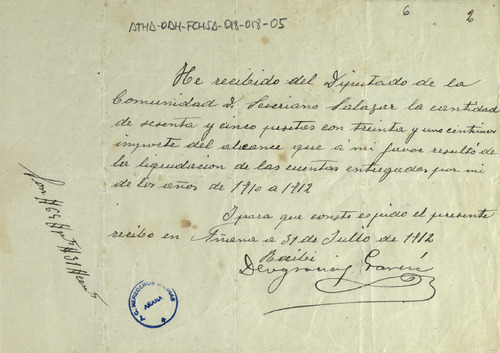 ATHA-DAH-FCHSA-018-018-05
6 2
He recibido del Diputado de la
Comunidad D. Severiano Salazar la cantidad
de sesenta y cinco pesetas con treinta y un centimos
importe del alcance que a mi favor resultó de
la liquidacion de las cuentas entregadas por mi
de los años de 1910 a 1912
I para que conste espido el presente
recibo en Añana a 31 de Julio de 1912
Recibi
Deogracias
HEREDEROS SALINAS
AÑANA